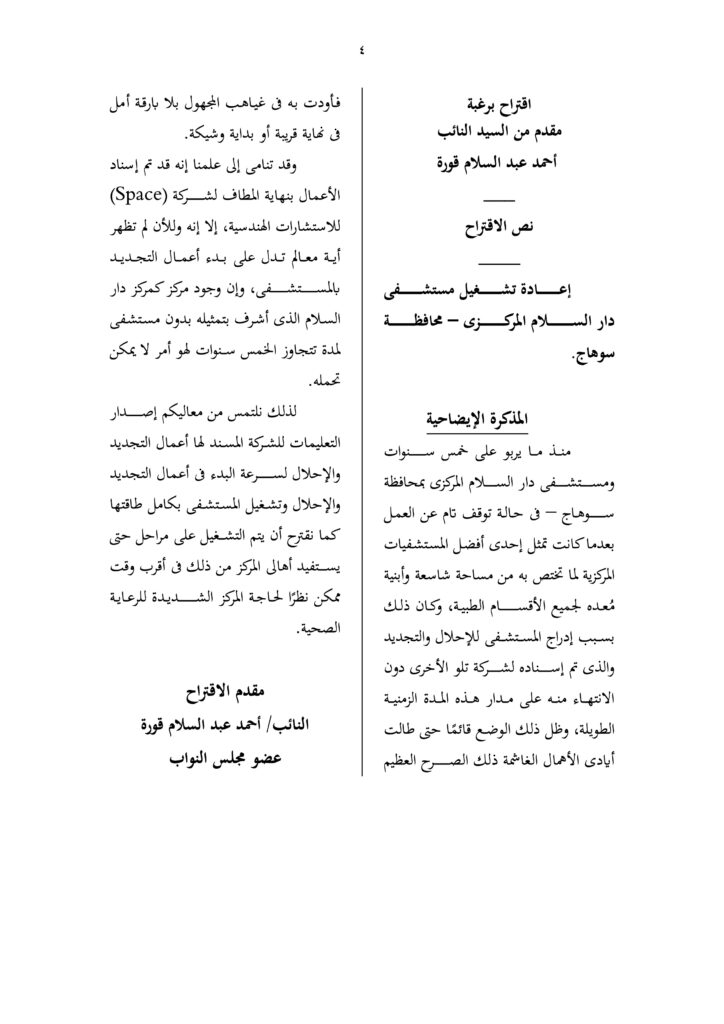 ٤
اقتراح برغبة
مقدم من السيد النائب
أحمد عبد السلام قورة
نص الاقتراح
إعادة تشغيل مستشفى
دار السلام المركزى – محافظة
سوهاج.
المذكرة الإيضاحية
منذ ما يربو على خمس سنوات
ومستشفى دار السلام المركزى بمحافظة
سوهاج – فى حالة توقف تام عن العمل
بعدما كانت تمثل إحدى أفضل المستشفيات
المركزية لما تختص به من مساحة شاسعة وأبنية
مُعده لجميع الأقسام الطبية، وكان ذلك
بسبب إدراج المستشفى للإحلال والتجديد
والذى تم إسناده لشركة تلو الأخرى دون
الانتهاء منه على مدار هذه المدة الزمنية
الطويلة، وظل ذلك الوضع قائمًا حتى طالت
أيادى الأهمال الغاشمة ذلك الصرح العظيم
فأودت به فى غياهب المجهول بلا بارقة أمل
فى نهاية قريبة أو بداية وشيكة.
وقد تنامى إلى علمنا إنه قد تم إسناد
الأعمال بنهاية المطاف لشركة (Space)
للاستشارات الهندسية، إلا إنه وللأن لم تظهر
أية معالم تدل على بدء أعمال التجديد
بالمستشفى، وإن وجود مركز كمركز دار
السلام الذى أشرف بتمثيله بدون مستشفى
لمدة تتجاوز الخمس سنوات لهو أمر لا يمكن
تحمله.
لذلك نلتمس من معاليكم إصدار
التعليمات للشركة المسند لها أعمال التجديد
والإحلال لسرعة البدء فى أعمال التجديد
والإحلال وتشغيل المستشفى بكامل طاقتها
كما نقترح أن يتم التشغيل على مراحل حتى
يستفيد أهالى المركز من ذلك فى أقرب وقت
ممكن نظرًا لحاجة المركز الشديدة للرعاية
الصحية.
مقدم الاقتراح
النائب/ أحمد عبد السلام قورة
عضو مجلس النواب